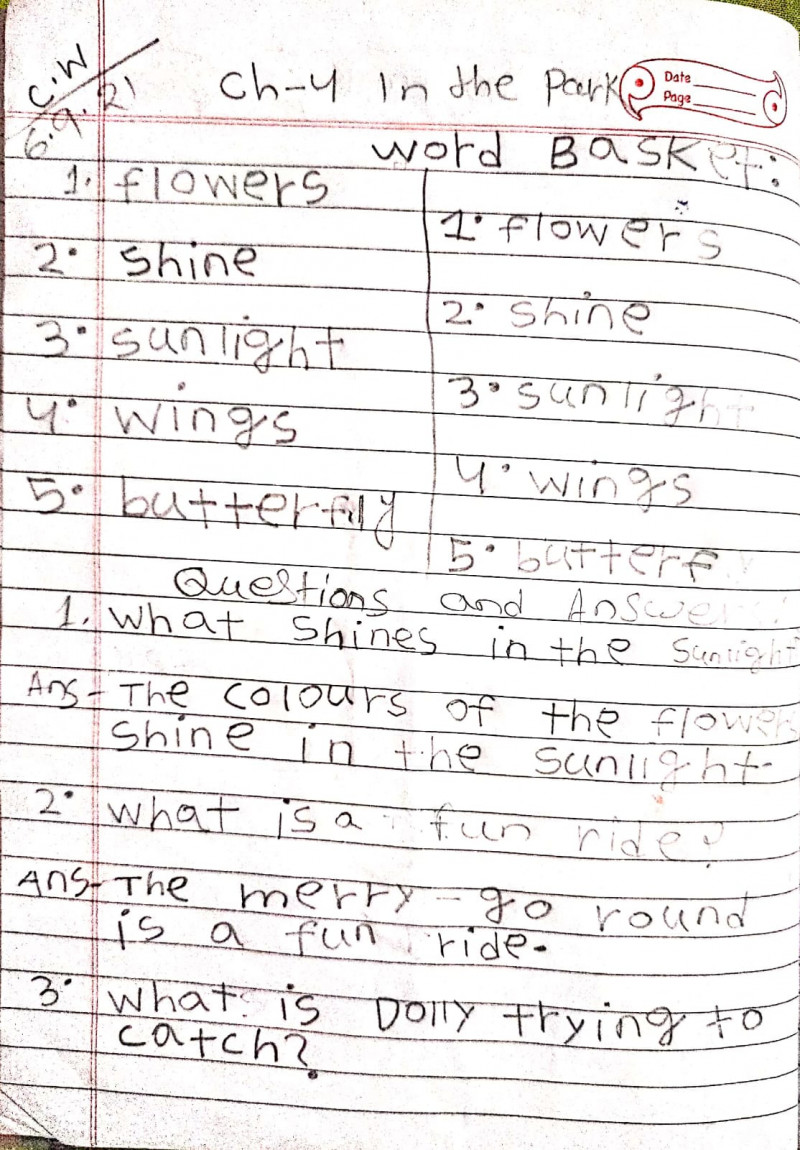 C.W
6.9.21
Ch-4 In the Park
Date
Page
Word Basket:
1. flowers
2. shine
3. sunlight
4. wings
5. butterfly
1. flowers
2. shine
3. sunlight
4. wings
5. butterf
Questions and Answer
1. What shines in the sunlight
Ans- The colours of the flower
shine in the sunlight.
2. What is a fun ride?
Ans- The merry-go round
is a fun ride.
3. What is Dolly trying to
catch?